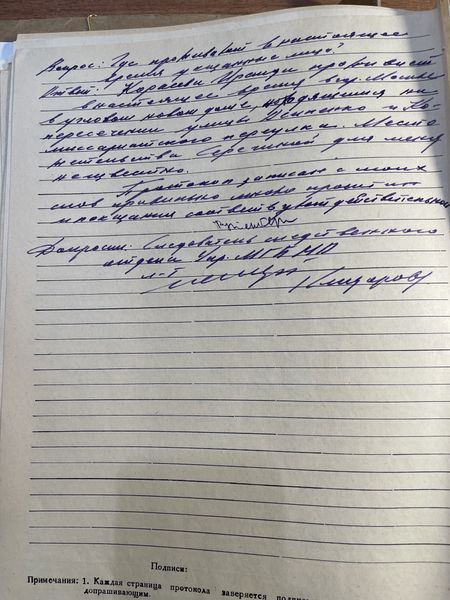 Вопрос: Где проживают в настоящее
время указанные лица?
Ответ: Карасева Ираида проживает
в настоящее время в гор. Москве
в угловом новом доме, находящимся на
пересечении улицы Осипенко и Ко-
миссариатского переулка. Место
жительства Сергиной для меня
неизвестно.
Протокол записан с моих
слов правильно мною прочитан
и показания соответствуют действительности
Допросил: Следователь следственного
отдела Упр. МГБ МО
л-т
Подписи:
Примечания: 1. Каждая страница протокола заверяется
допрашивающим.